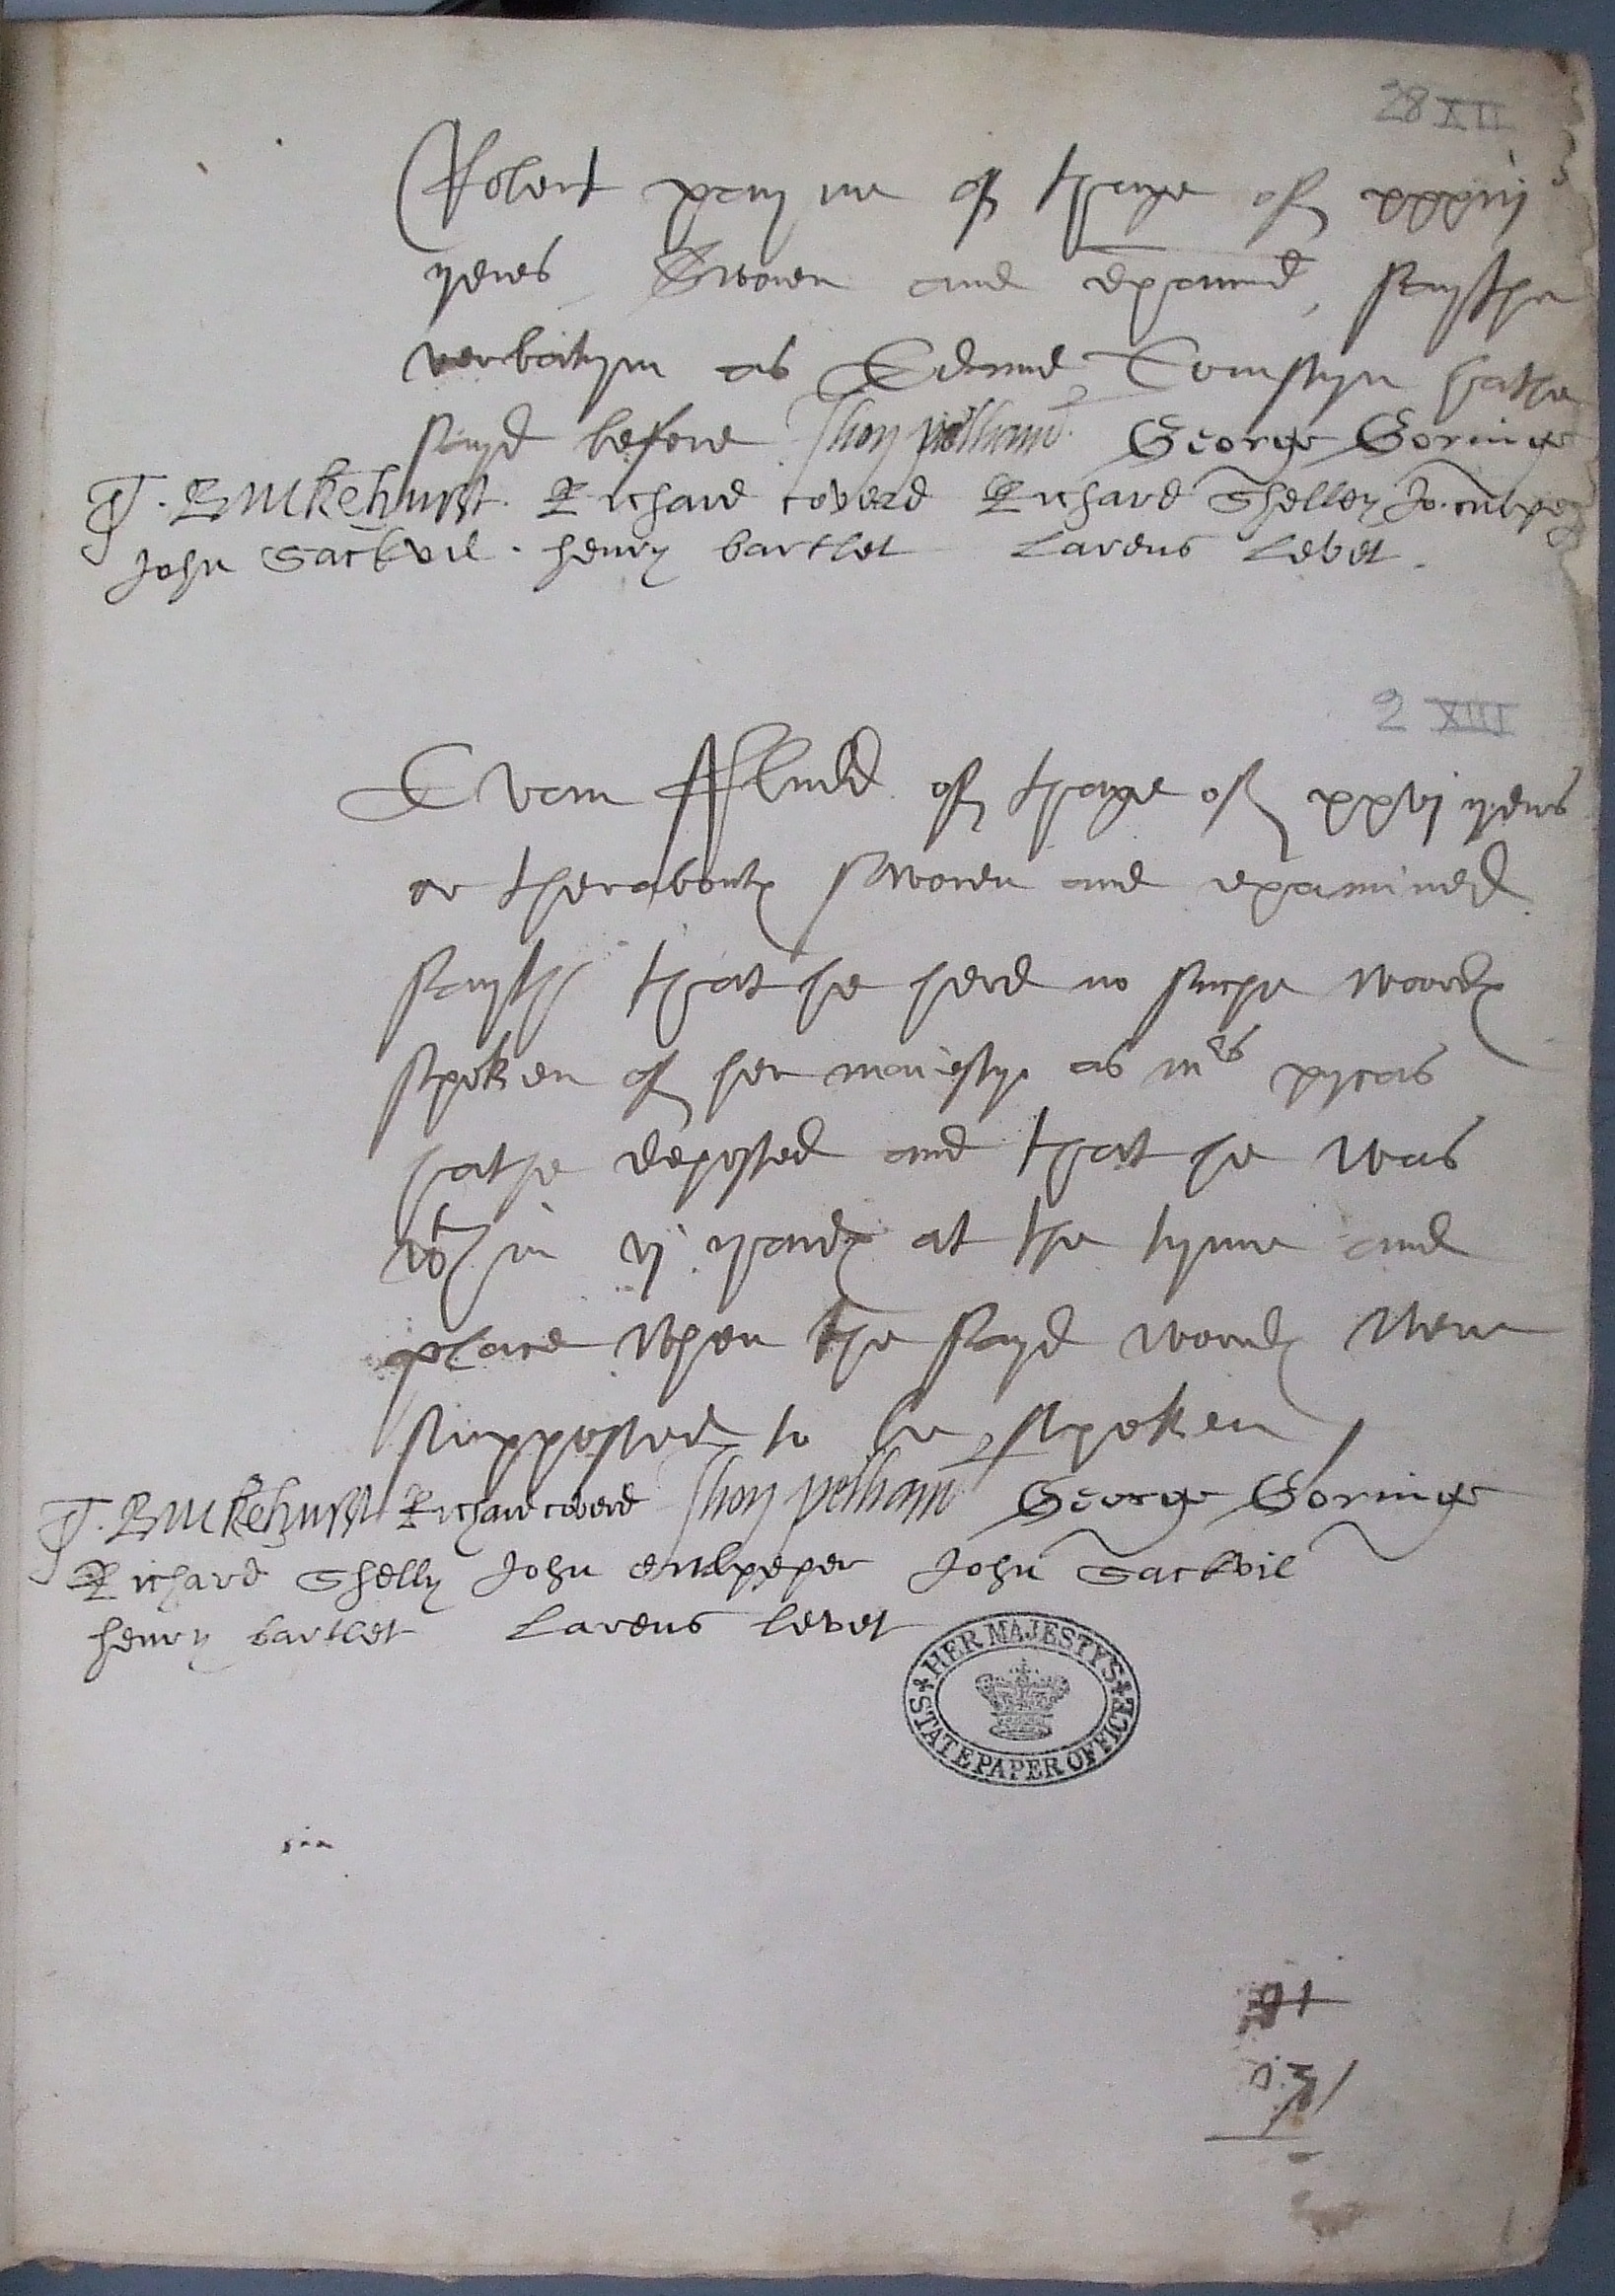 28 XII
Robert payne of thage of xxxiij
yeres Sworen and examined, saythe
verbatym as Edmund Comstyn hathe
sayd before Thoṃ pelham George Goringe
T. Buckehurst. Richard coverd Richard Shelley Jo. culpep
John Sackvil. henry bartlet Larens Levet.
2 XIII
Evan Fludd of thage of xxvj yeres
or theraboutes sworen and examined
sayth that he herd no suche woordes
spoken of her maiestye as mres pycas
hathe deposed and that he was
wthin vj yardes at the tyme and
place when the sayd woordes were
supposed to be spoken
T. Buckehurst Richard coverd Thoṃ pelham George Goringe
Richard Shelly John culpeper John Sackvil
henry bartlet Larens levet
HER MAJESTY'S STATE PAPER OFFICE